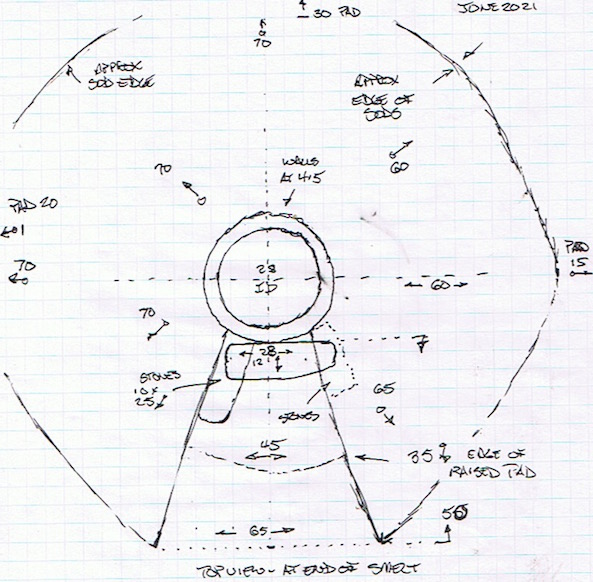 30 PAD
JUNE 2021
70
APPROX
SOD EDGE
APPROX
EDGE OF
SODS
WALLS
AT 4-5
70
60
PAD 20
70
28
ID
PAD
15
60
70
28
12
7
STONES
10 X
25
STONES
65
45
35
EDGE OF
RAISED PAD
65
TOP VIEW - AT END OF SMELT